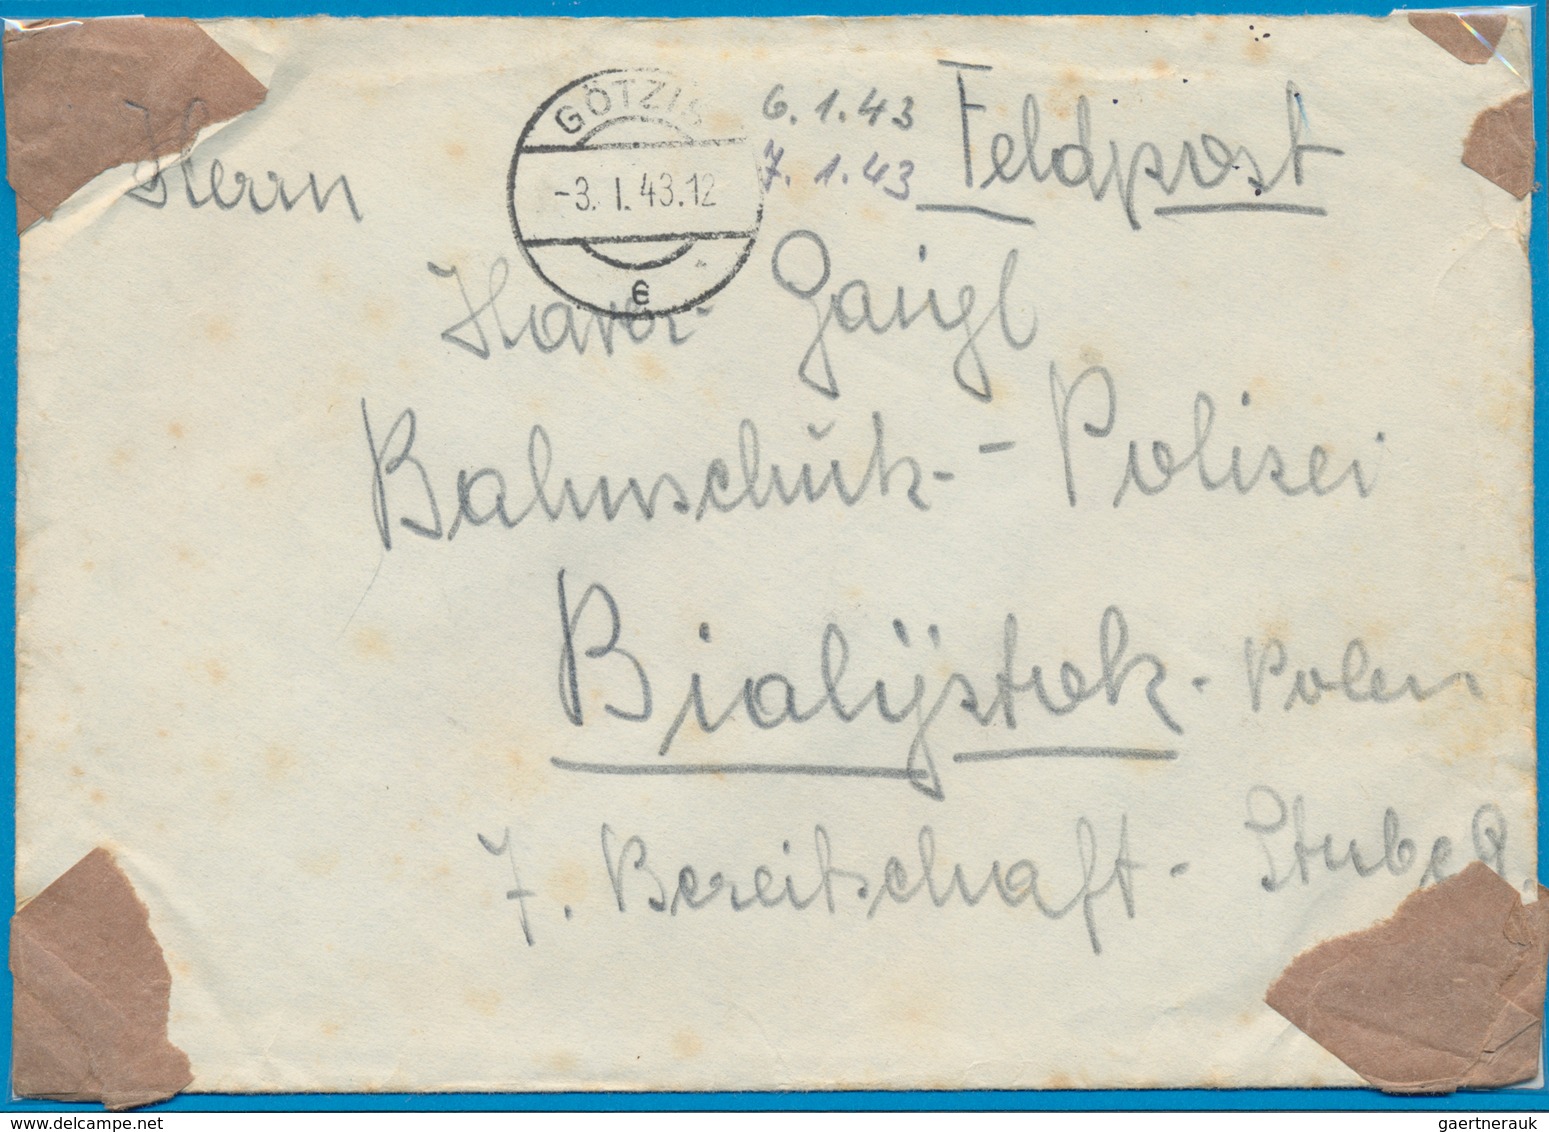 GÖTZIS
-3. I. 43.12
e
6. 1. 43
7. 1. 43
Feldpost
Herrn
Xaver Gaigl
Bahnschutz-Polizei
Bialÿstok - Polen
7. Bereitschaft - Stube 9.
gaertnerauk
www.delcampe.net